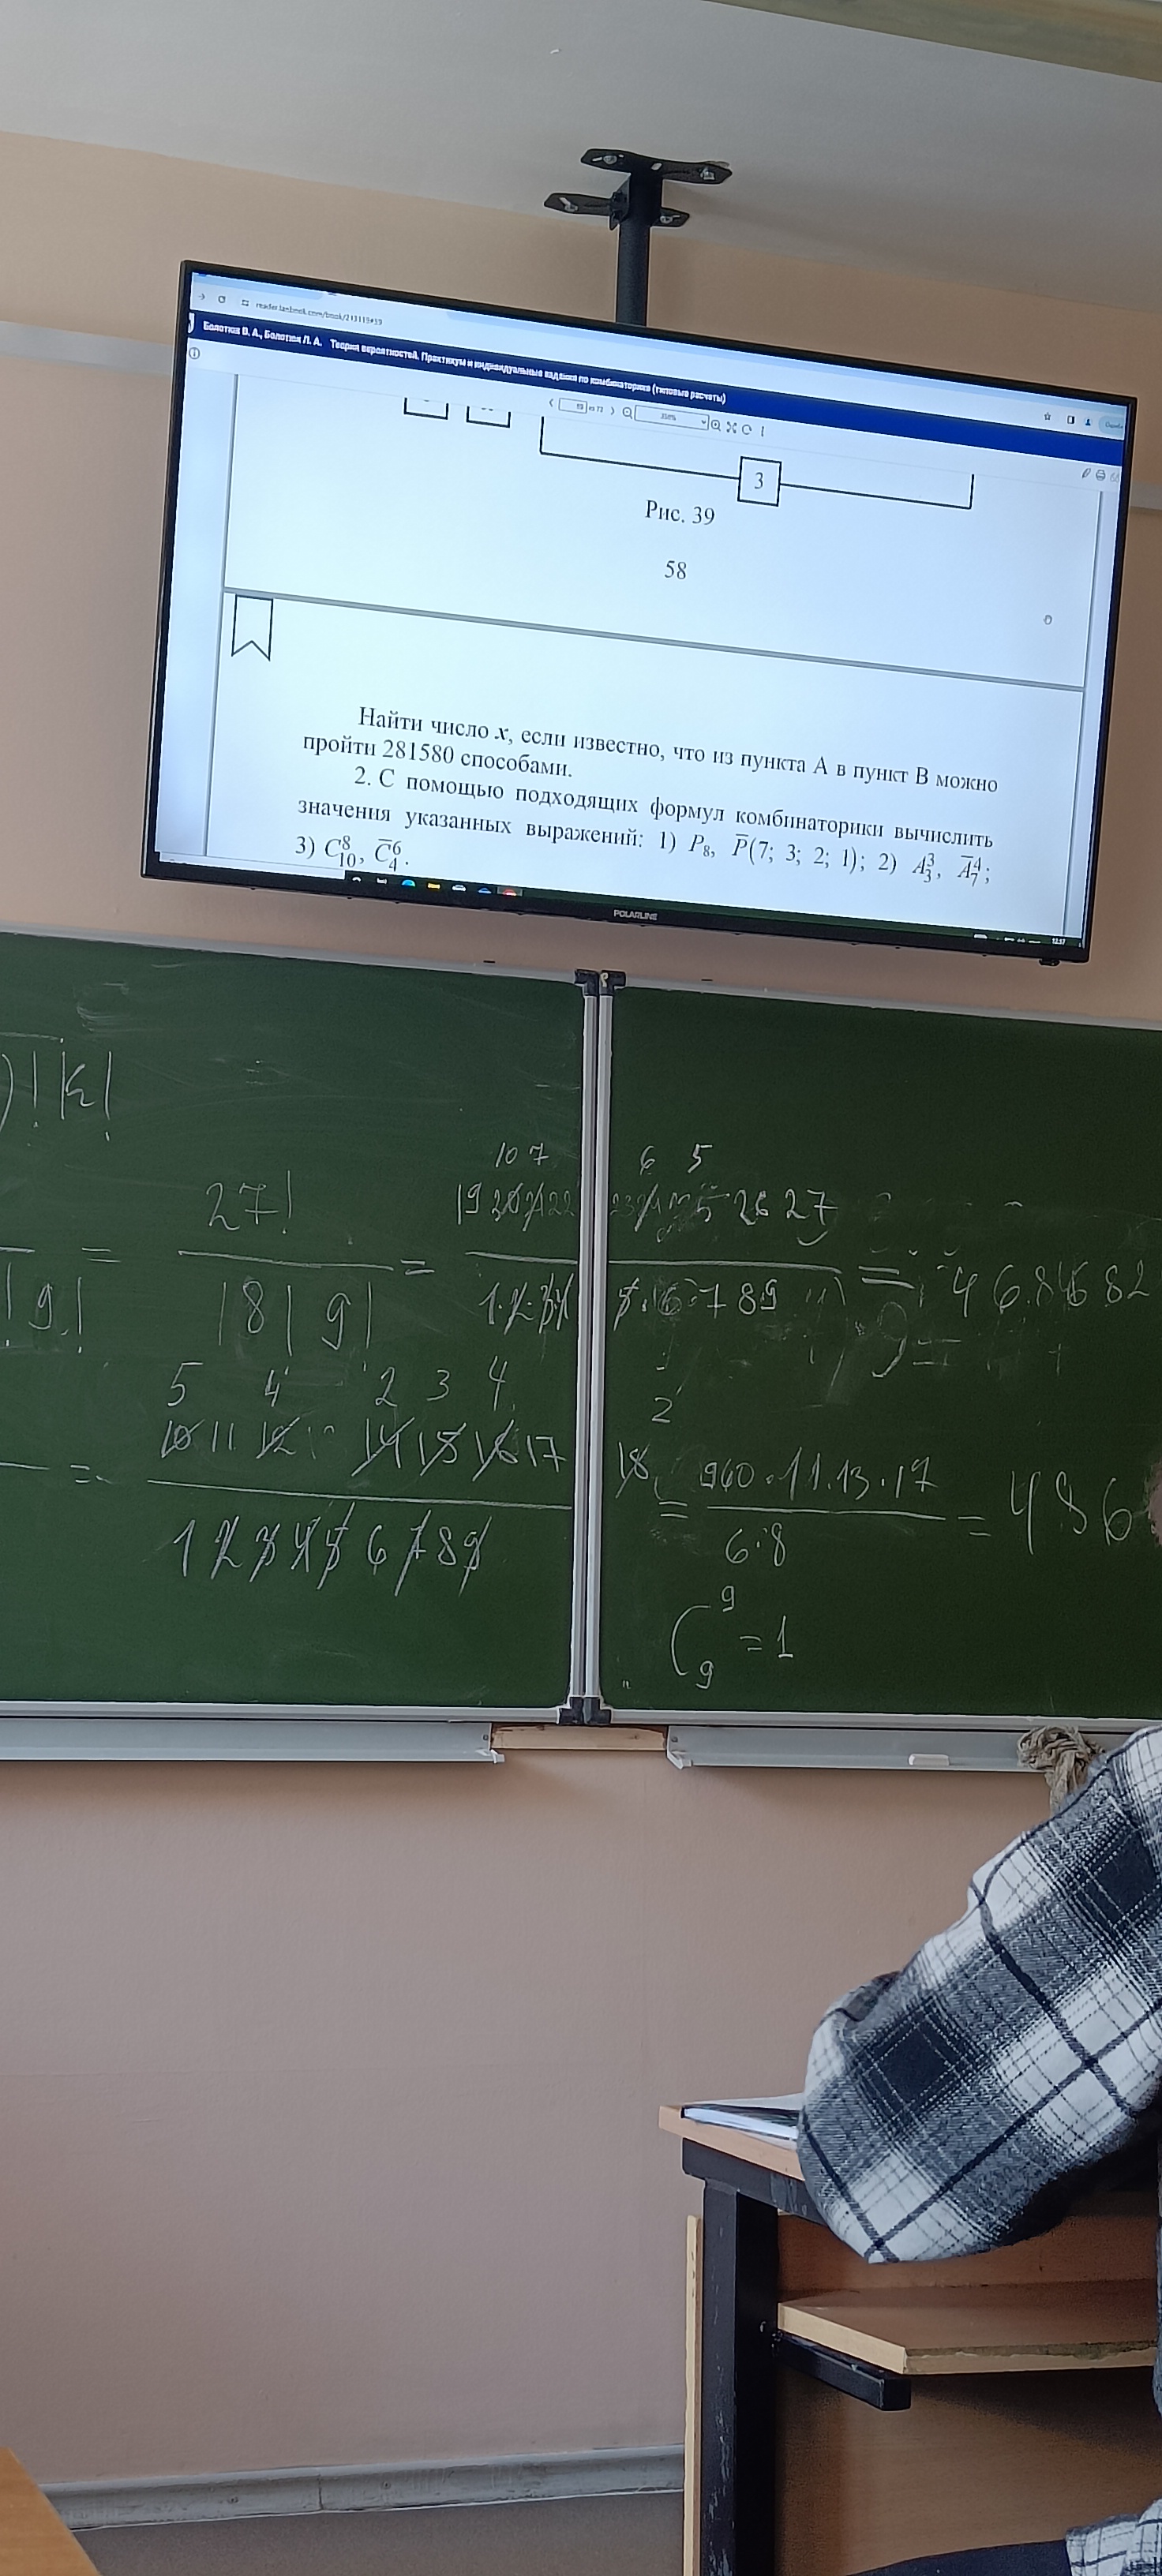 reader.lanbook.com/book/213119#59
Болотюк В. А., Болотюк Л. А. Теория вероятностей. Практикум и индивидуальные задания по комбинаторике (типовые расчеты)
59 из 72
350%
3
Рис. 39
58
Найти число x, если известно, что из пункта A в пункт B можно
пройти 281580 способами.
2. С помощью подходящих формул комбинаторики вычислить
значения указанных выражений: 1) P₈, P̅(7; 3; 2; 1); 2) A₃³, A̅₇⁴;
3) C₁₀⁸, C̅₄⁶.
12:37
POLARLINE
)! k!
10 7 6 5
27! 19 20 21 22 26 27
= = =
9! 18! 9! 1 · 2 · 3 4 5 · 6 · 7 8 9
5 4 2 3 4 2
10 11 12 14 15 16 17 18 960 · 11 · 13 · 17
= = =
1 2 3 4 5 6 7 8 9 6 · 8
C₉⁹ = 1